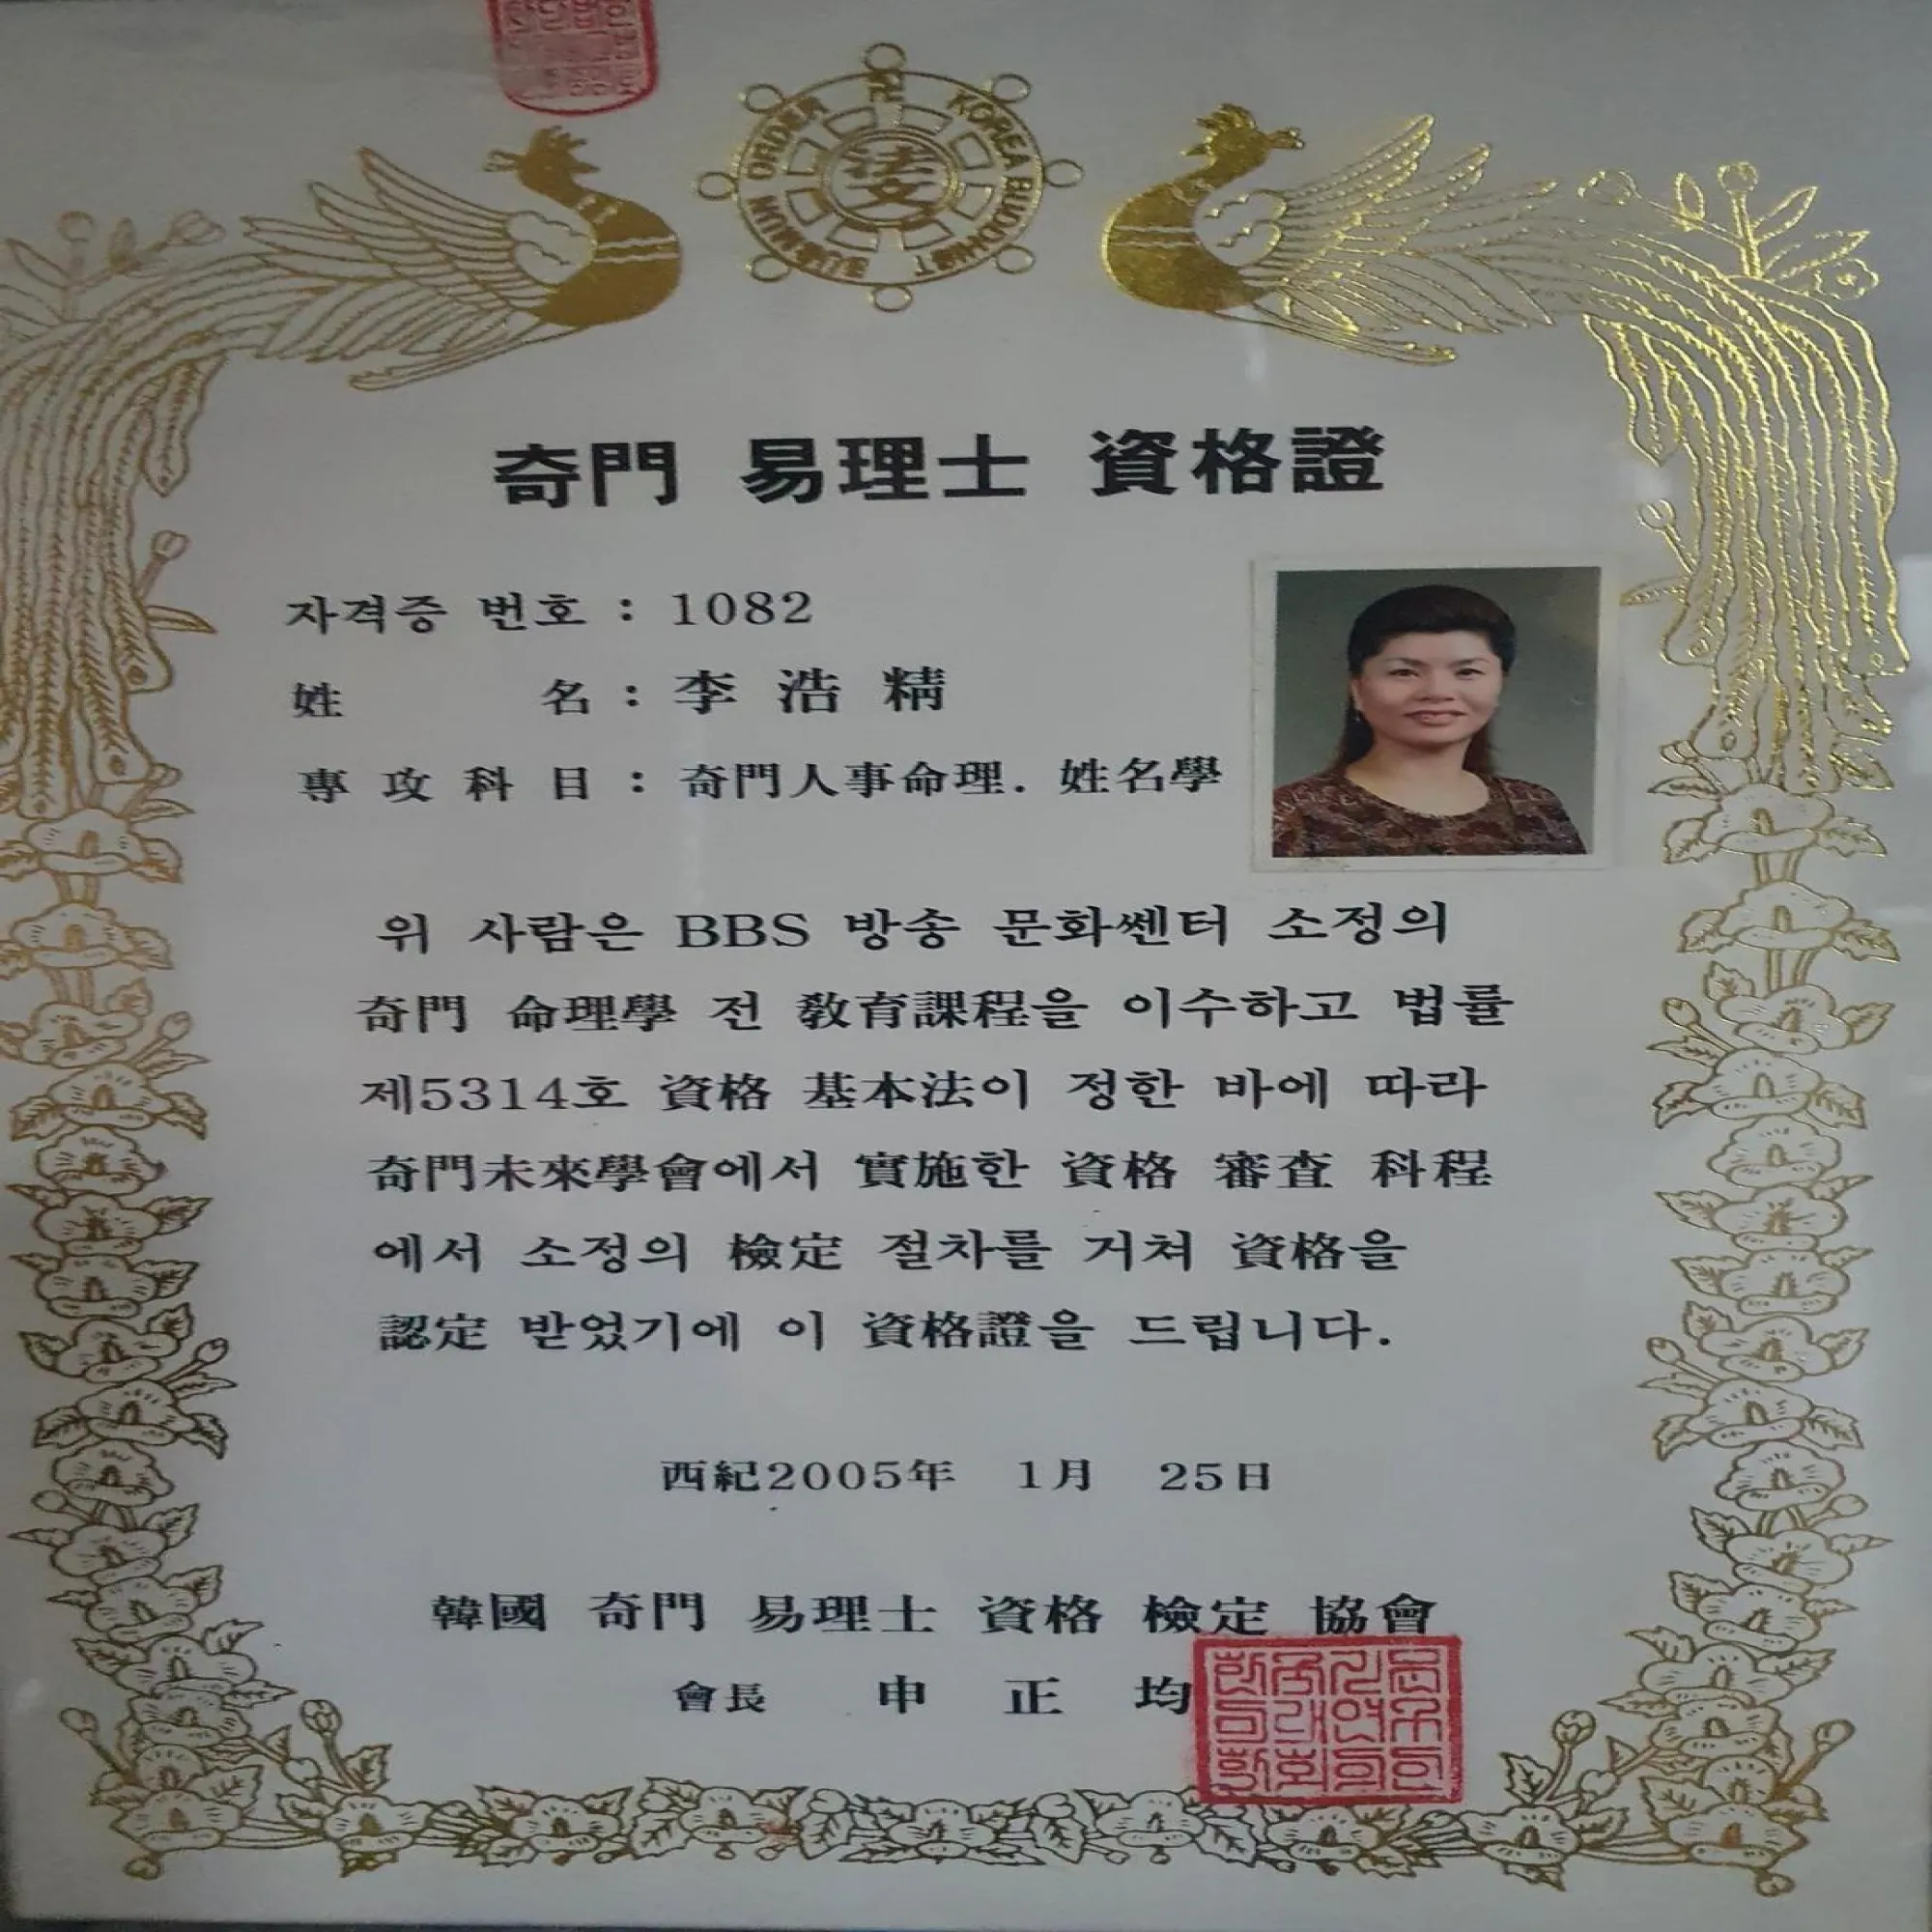 卍 KOREA BUDDHIST BUBMUN ORDER
法文
奇門 易理士 資格證
자격증 번호 : 1082
姓 名 : 李 浩 精
專 攻 科 目 : 奇門人事命理. 姓名學
위 사람은 BBS 방송 문화쎈터 소정의
奇門 命理學 전 敎育課程을 이수하고 법률
제5314호 資格 基本法이 정한 바에 따라
奇門未來學會에서 實施한 資格 審査 科程
에서 소정의 檢定 절차를 거쳐 資格을
認定 받었기에 이 資格證을 드립니다.
西紀2005年 1月 25日
韓國 奇門 易理士 資格 檢定 協會
會長 申 正 均